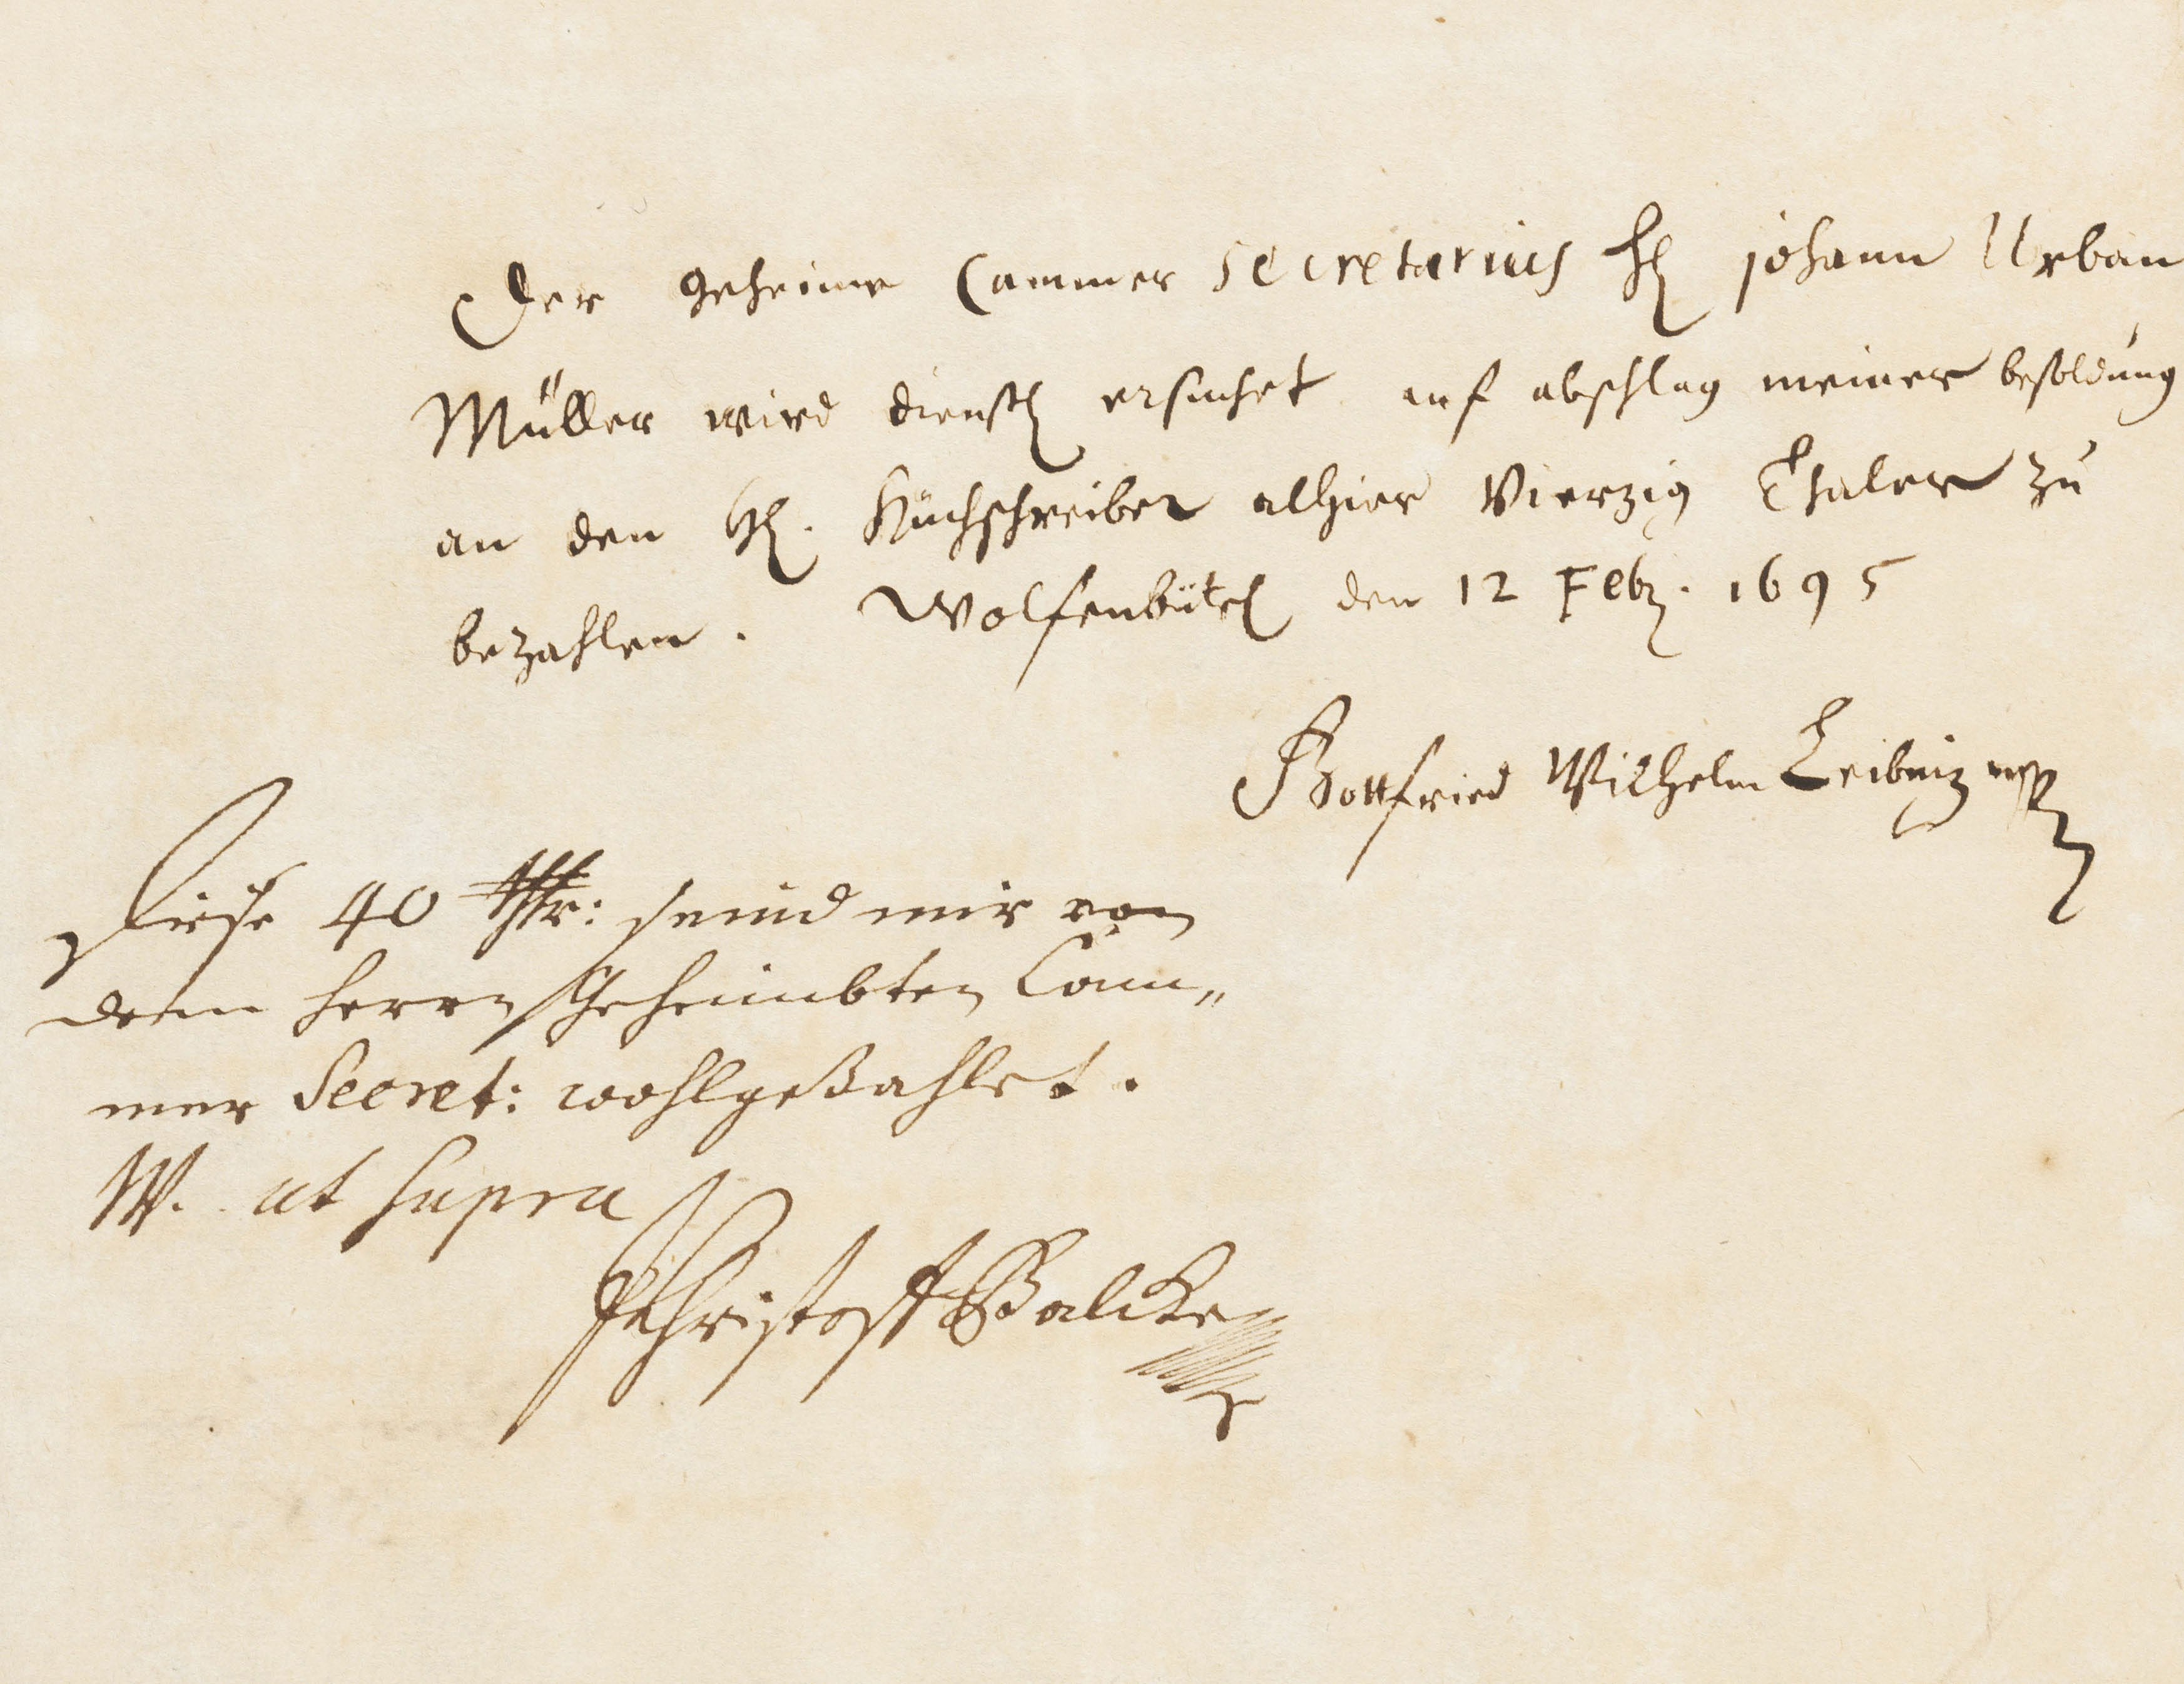 Der geheime Cammer Secretarius H. Johann Urban
Müller wird dienstl. ersuchet auf abschlag meiner besoldung
an den H. Küchschreiber alhier Vierzig Thaler zu
bezahlen. Wolfenbütel den 12 Febr. 1695
Gottfried Wilhelm Leibniz mp
Diese 40 thlr: seind mir von
dem herrn Geheimbten Cam„
mer Secret: wohlgezahlet.
W. ut supra
Christoff Balcke